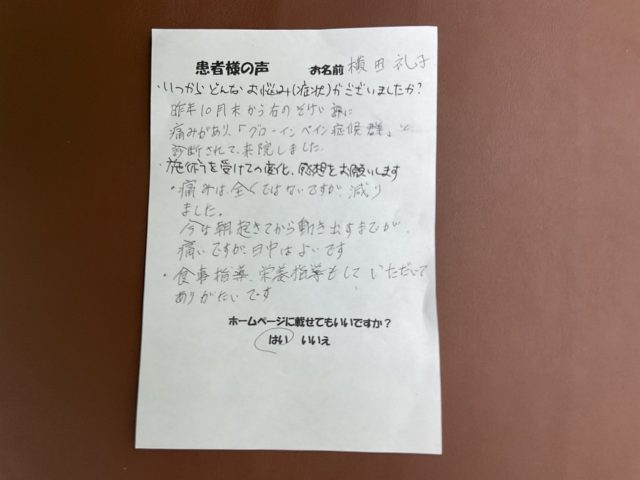 患者様の声 お名前 横田 礼子
・いつから どんな お悩み(症状)がございましたか?
昨年10月末から右のそけい部に
痛みがあり、「グローインペイン症候群」と
診断されて、来院しました。
・施術を受けての変化、感想をお願いします
・痛みは、全くではないですが、減り
ました。
今は朝起きてから動き出すまでが、
痛いですが、日中はよいです
・食事指導、栄養指導もして いただいて
ありがたいです
ホームページに載せてもいいですか?
はい いいえ